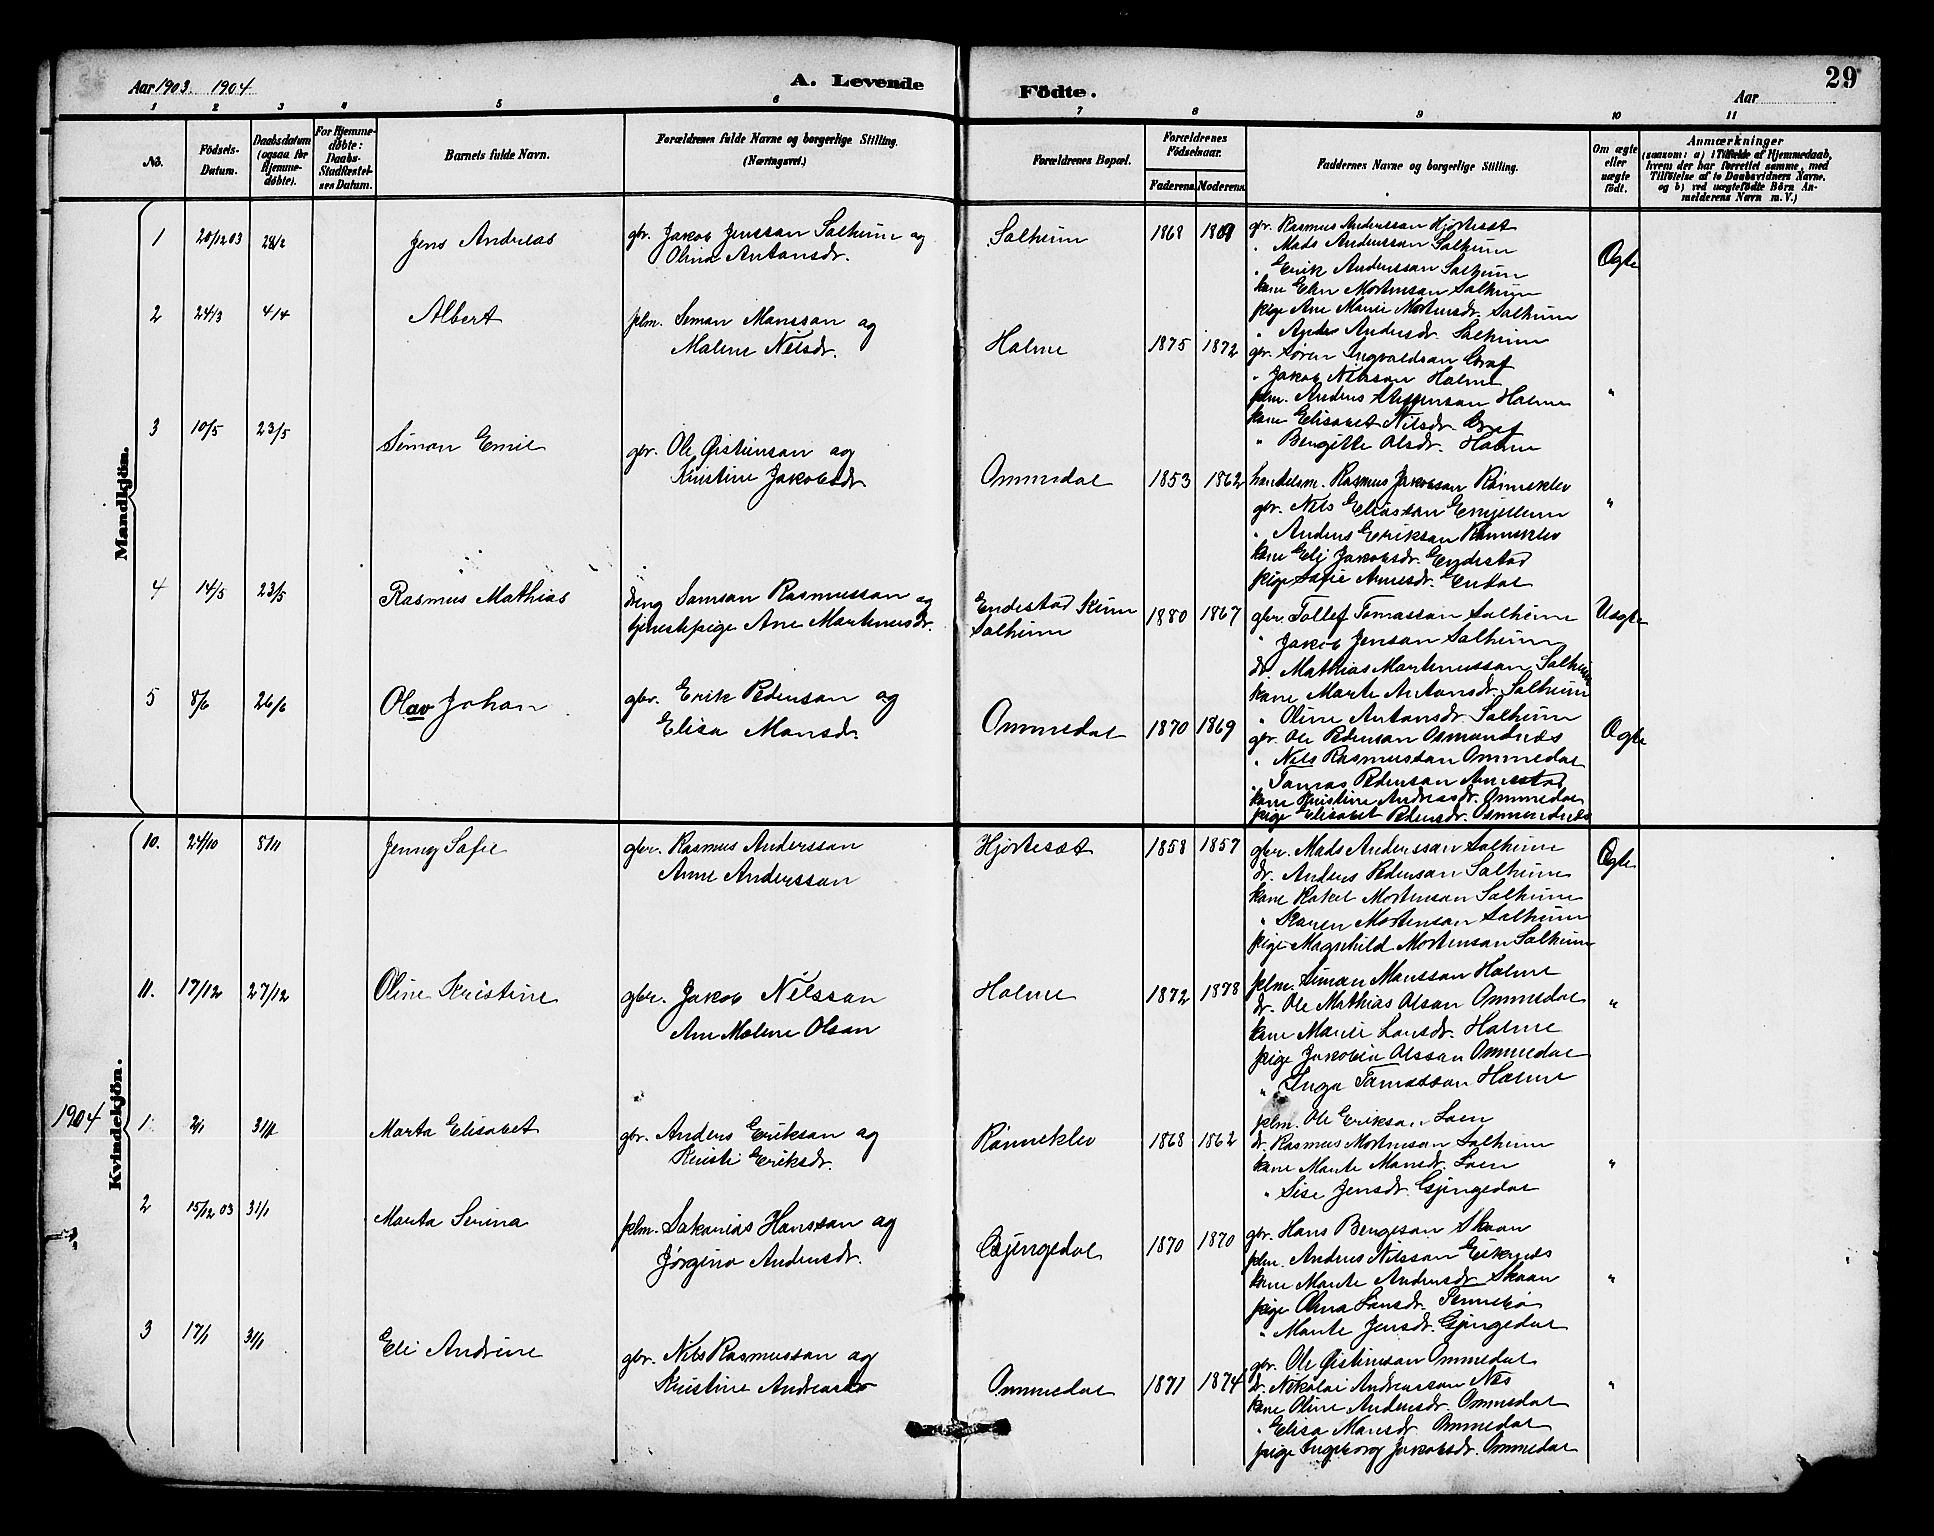 Aar 1903. 1904
A. Levende Födte.
Aar
29
1 2 3 4 5 6 7 8 9 10 11
No.
Födsels-Datum.
Daabsdatum (ogsaa for Hjemme-døbte).
For Hjemme-døbte: Daabs-Stadfæstel-ses Datum.
Barnets fulde Navn.
Forældrenes fulde Navne og borgerlige Stilling. (Næringsvei.)
Forældrenes Bopæl.
Forældrenes Födselsaar.
Faderens. Moderens.
Faddernes Navne og borgerlige Stilling.
Om ægte eller uægte födt.
Anmærkninger
(saasom: a) i Tilfælde af Hjemmedaab, hvem der har forrettet samme, med Tilföielse af to Daabsvidners Navne, og b) ved uægtefödte Börn An-melderens Navn m. V.)
Mandkjön.
1 20/12 03 28/2 Jens Andreas
gbr. Jakob Jenssan Salheim og
Olina Antonsdr.
Salheim 1868
gbr. Rasmus Anderssan Hjørteset
" Mads Anderssan Salheim
" Erik Anderssan Salheim
kone Elen Mortensan Salheim
pige Ane Marie Mortensdr. Salheim
" Andersdr. Salheim
Ægte
2 24/3 4/4 Albert
plm. Simon Manssan og
Malene Nilsdr.
Holme 1875 1872
gbr. Søren Ingvaldsan
" Jakob Nilssan Holme
plm. Anders Holme
kone Elisabet Nilsdr.
" Bergitte Olsdr. Holme
"
3 10/5 23/5 Simon Emil
gbr. Ole Øistensan og
Kristine Jakobsdr
Ommedal 1853 1862
handelsm. Rasmus Jakobsan Rønneklev
gbr. Nils Eliassan
" Anders Eriksan Rønneklev
kone Eli Jakobsdr. Endestad
pige Sofie Arnesdr. Endal
"
4 14/5 23/5 Rasmus Mathias
dreng Samson Rasmussan og
tjenestepige Ane Martinusdr.
Endestad Kinn
Salheim
1880 1867
gbr. Tollef Tomassan Salheim
" Jakob Jensan Salheim
dr. Mathias Martinussan Salheim
kone Marte Antonsdr. Salheim
" Oline Antonsdr. Salheim
Uægte
5 8/6 26/6 Olav Johan
gbr. Erik Pedersan og
Elisa Monsdr.
Ommedal 1870 1869
gbr. Ole Pedersan Osmundnes
" Nils Rasmussan Ommedal
" Tomas Pedersan Arnestad
kone Kristine Andreasdr. Ommedal
pige Elisabet Pedersdr. Osmundnes
Ægte
Kvindekjön.
10. 24/10 8/11 Jenny Safie
gbr. Rasmus Anderssan
Anne Anderssan
Hjørteset 1858 1857
gbr. Mads Anderssan Salheim
dr. Anders Pedersan Salheim
kone Rakel Mortensan Salheim
" Karen Mortensan Salheim
pige Magnhild Mortensan Salheim
Ægte
11. 17/12 27/12 Oline Kristine
gbr. Jakob Nilssan
Ane Malene Olsan
Holme 1872 1878
plm. Simon Manssan Holme
dr. Ole Mathias Olsan Ommedal
kone Marie Larsdr. Holme
pige Jakobine Olssan Ommedal
" Inga Tomassan Holme
"
1904
1. 2/1 31/1 Marta Elisabet
gbr. Anders Eriksan og
Kristi Eriksdr.
Rønneklev 1868 1862
plm. Ole Eriksan Loen
dr. Rasmus Mortensan Salheim
kone Marte Mansdr. Loen
" Sise Jensdr. Gjengedal
"
2 15/12 03 31/1 Marta Serina
plm. Sakarias Hanssan og
Jørgina Andersdr.
Gjengedal 1870 1870
gbr. Hans Bengtsan Skaan
plm. Anders Nilssan Eikenes
kone Marte Andersdr. Skaan
pige Olina Larsdr. Tennebø
" Marte Jensdr. Gjengedal
"
3 17/1 31/1 Eli Andrine
gbr. Nils Rasmussan og
Kristine Andreasdr
Ommedal 1871 1874
gbr. Ole Øistensan Ommedal
dr. Nikolai Andreassan Nes
kone Oline Andersdr. Ommedal
" Elisa Mansdr Ommedal
pige Ingeborg Jakobsdr. Ommedal
"